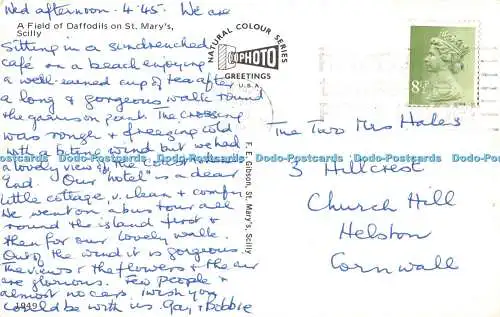 Wed afternoon. 4.45. We are
A Field of Daffodils on St. Mary's,
Scilly
sitting in a sundrenched
café on a beach enjoying
a well-earned cup of tea after
a long & gorgeous walk round
the garrison part. The crossing
was rough & freezing cold
with a biting wind but we had
a lovely view of the Land's
End. Our "hotel" is a dear
little cottage, v. clean & comfy.
We went on a bus tour all
round the island first &
then for our lovely walk.
Out of the wind it is gorgeous.
The views & the flowers & the air
are glorious. Few people &
almost no cars. Wish you
could be with us. Gay & Debbie
1949
NATURAL COLOUR SERIES
PHOTO
GREETINGS
U.S.A.
F. E. Gibson, St. Mary's, Scilly
8½P
The Two Mrs Hales
3 Hillcrest
Church Hill
Helston
Cornwall
Dodo-Postcards Dodo-Postcards Dodo-Postcards Dodo-Postcards Dodo-Postcards Dodo-Postcards